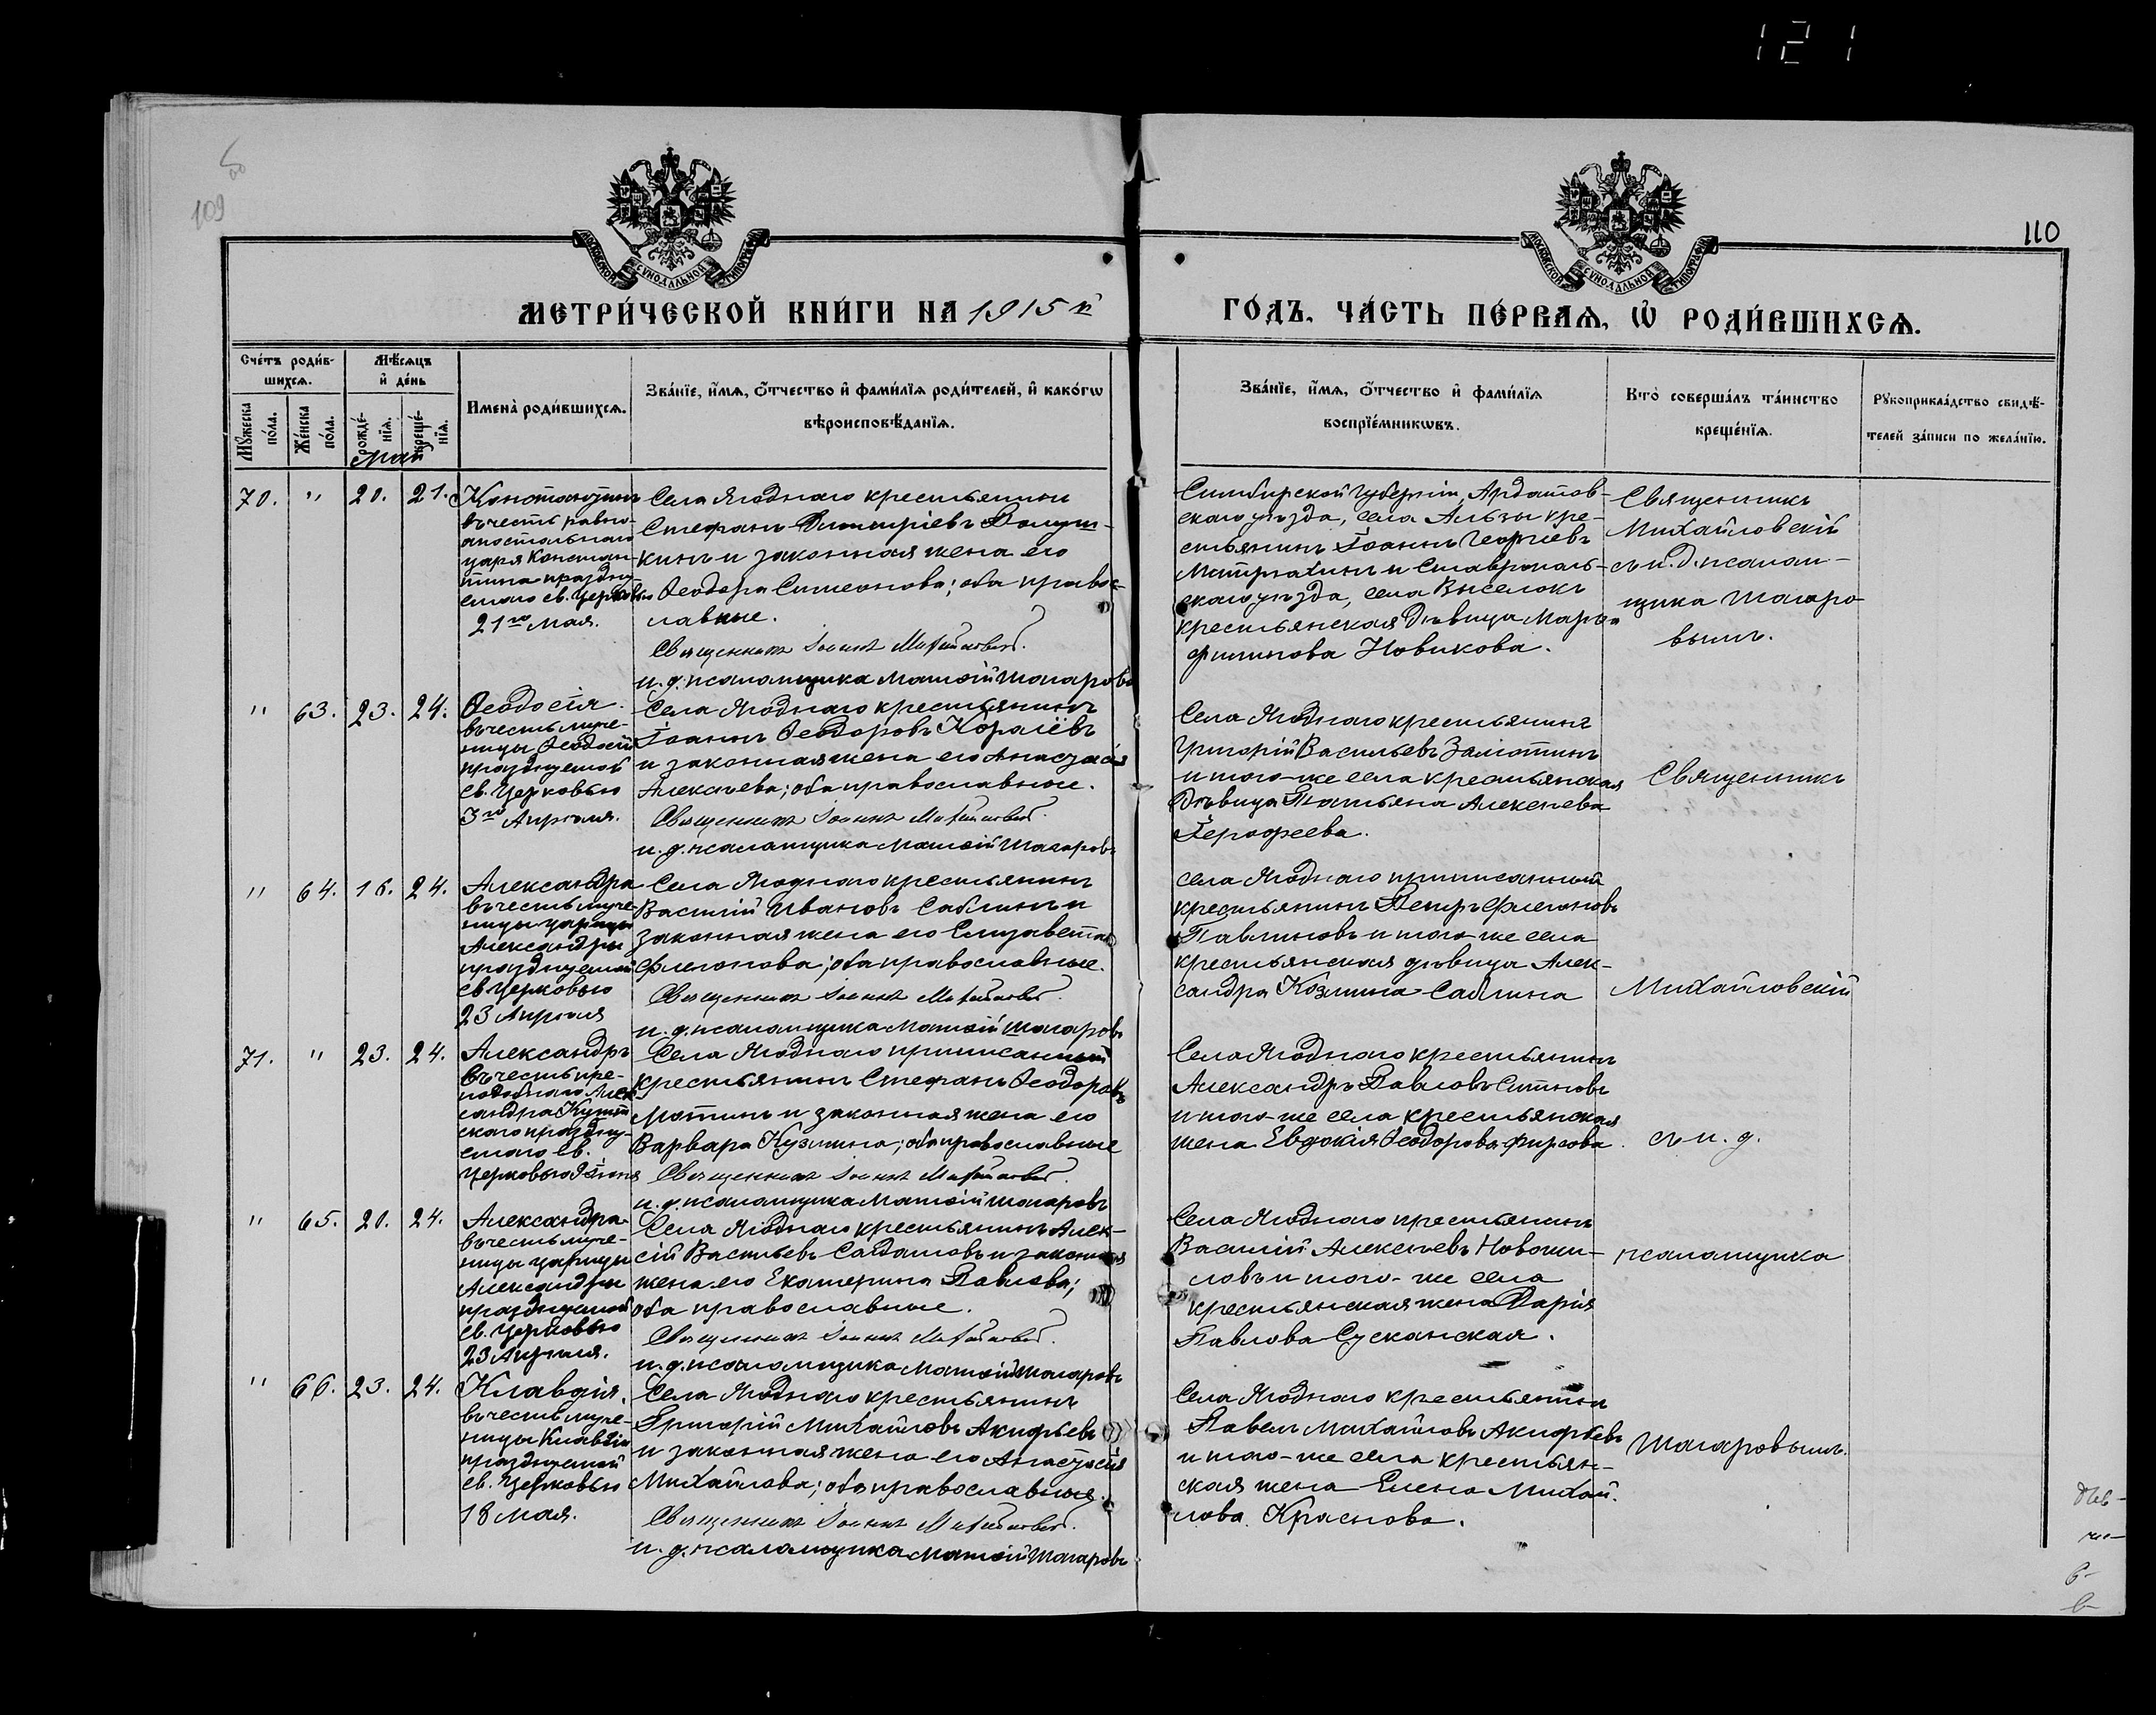 121
109
110
МОСКОВСКОЙ СѴНОДАЛЬНОЙ ТИПОГРАФІИ
МОСКОВСКОЙ СѴНОДАЛЬНОЙ ТИПОГРАФІИ
МЕТРИ́ЧЕСКОЙ КНИ́ГИ НА 1915 й
ГО́ДЪ, ЧА́СТЬ ПЕ́РВАѦ, Ѡ҆ РОДИ́ВШИХСѦ.
Сче́тъ роди́в-
шихсѧ.
Мѣ́сѧцъ
и҆ де́нь
Мꙋ́жеска по́ла.
Же́нска по́ла.
рожде́-
нїѧ.
креще́-
нїѧ.
Имена̀ роди́вшихсѧ.
Зва́нїе, и҆́мѧ, ѻ҆́тчество и҆ фами́лїѧ роди́телей, и҆ како́гѡ
вѣроисповѣ́данїѧ.
Зва́нїе, и҆́мѧ, ѻ҆́тчество и҆ фами́лїѧ
воспрїе́мникѡвъ.
Кто̀ соверша́лъ та́инство
креще́нїѧ.
Рꙋкоприкла́дство свидѣ́-
телей за́писи по жела́нїю.
Май
70. " 20. 21. Константинъ
въ честь равно-
апостольнаго
царя Констан-
тина праздну-
емаго св. Церковью
21го Мая.
Села Ягоднаго крестьянин
Стефанъ Димитріевъ
кинъ и законная жена его
Ѳеодора Симеонова; оба правос-
лавные.
Священникъ Іоаннъ Михайловскій.
и. д. псаломщика Матѳій Шагаровъ
Симбирской губерніи, Ардатов-
скаго уѣзда, села Альзы кре-
стьянинъ Іоаннъ Георгіевъ
и Ставрополь-
скаго уѣзда, села Выселокъ
крестьянская дѣвица Марѳа
Филипова Новикова.
Священникъ
Михайловскій
съ и. д. псалом-
щика Шагаро-
вымъ.
" 63. 23. 24. Ѳеодосія.
въ честь муче-
ницы Ѳеодосіи
празднуемой
св. Церковью
3го Апрѣля.
Села Ягоднаго крестьянинъ
Іоаннъ Ѳеодоровъ Королёвъ
и законная жена его Анастасія
Алексѣева; оба православные.
Священникъ Іоаннъ Михайловскій.
и. д. псаломщика Матѳій Шагаровъ
Села Ягоднаго крестьянинъ
Григорій Васильевъ Замотинъ
и того-же села крестьянская
дѣвица Татьяна Алексѣева
Ерофеева.
Священникъ
" 64. 16. 24. Александра
въ честь муче-
ницы царицы
Александры
празднуемой
св. Церковью
23 Апрѣля
Села Ягоднаго крестьянинъ
Василій Ивановъ Саблинъ и
законная жена его Елизавета
Филипова; оба православные.
Священникъ Іоаннъ Михайловскій.
и. д. псаломщика Матѳій Шагаровъ
Села Ягоднаго приписанный
крестьянинъ Петръ
Павлиновъ и того-же села
крестьянская дѣвица Алек-
сандра Козмина Саблина
Михайловскій
71. " 23. 24. Александръ
въ честь пре-
подобнаго Алек
сандра Кушт
скаго праздну-
емаго св.
Церковью 9 Іюня
Села Ягоднаго приписанный
крестьянинъ Стефанъ Ѳеодоровъ
Мотинъ и законная жена его
Варвара Кузмина; оба православные
Священникъ Іоаннъ Михайловскій.
и. д. псаломщика Матѳій Шагаровъ
Села Ягоднаго крестьянинъ
Александръ Павловъ Ситновъ
и того-же села крестьянская
жена Евдокія Ѳеодорова Фирсова.
съ и. д.
" 65. 20. 24. Александра
въ честь муче-
ницы царицы
Александры
празднуемой
св. Церковью
23 Апрѣля.
Села Ягоднаго крестьянинъ Алек-
сій Васильевъ Солдатовъ и законная
жена его Екатерина Павлова;
оба православные.
Священникъ Іоаннъ Михайловскій.
и. д. псаломщика Матѳій Шагаровъ
Села Ягоднаго крестьянинъ
Василій Алексѣевъ Новоки-
ловъ и того-же села
крестьянская жена Дарія
Павлова Сусканская.
псаломщика
" 66. 23. 24. Клавдія.
въ честь муче-
ницы Клавдіи
празднуемой
св. Церковью
18 Мая.
Села Ягоднаго крестьянинъ
Григорій Михайловъ Акифьевъ
и законная жена его Анастасія
Михайлова; оба православные.
Священникъ Іоаннъ Михайловскій.
и. д. псаломщика Матѳій Шагаровъ
Села Ягоднаго крестьянинъ
Павелъ Михайловъ Акифьевъ
и того-же села крестьян-
ская жена Елена Михай-
лова Краснова.
Шагаровымъ.